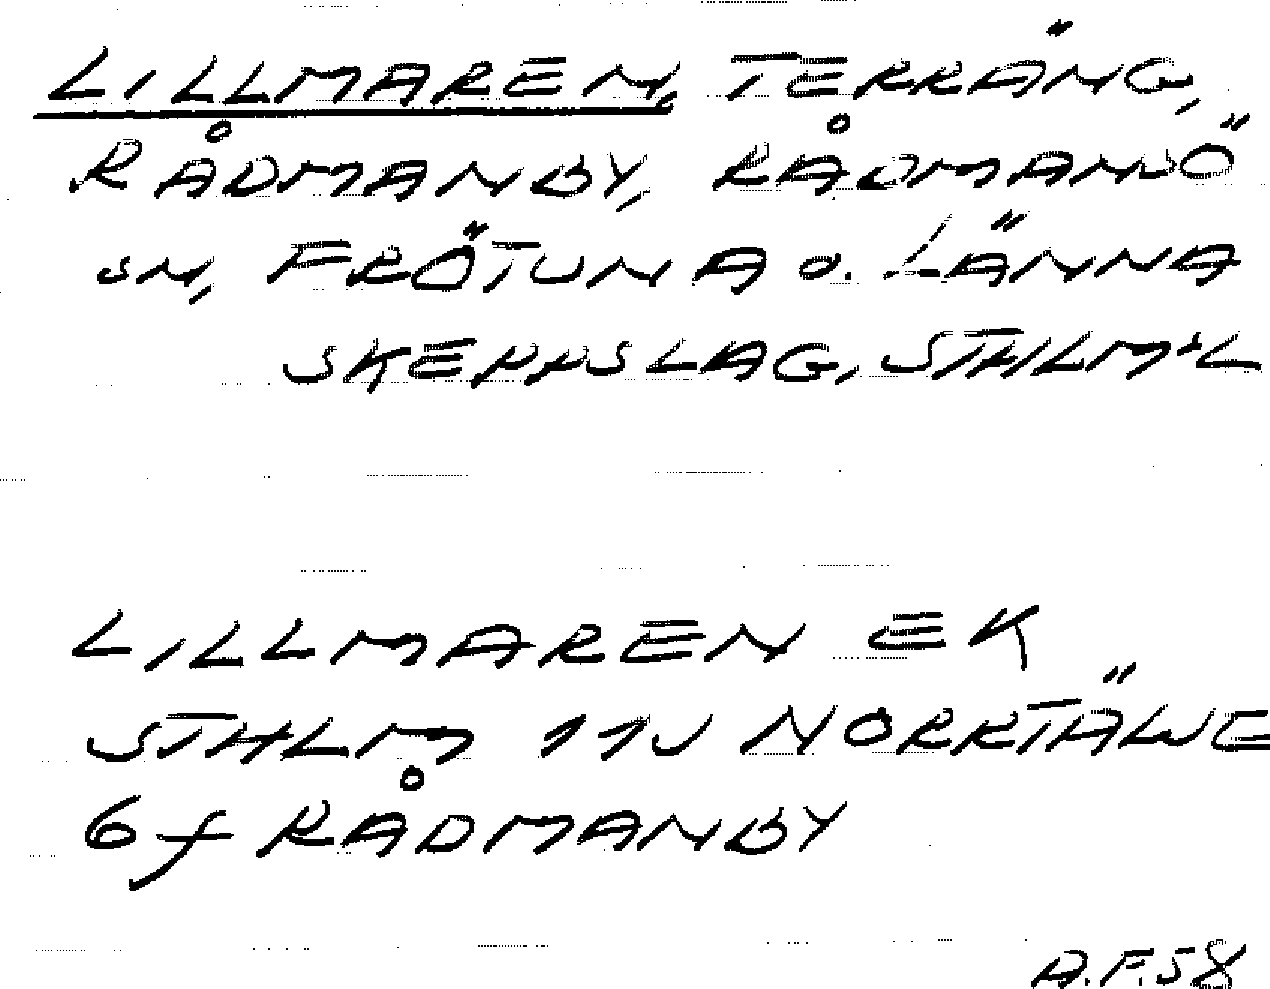 LILLMAREN, TERRÄNG,
RÅDMANBY, RÅDMANSÖ
SN, FRÖTUNA O. LÄNNA
SKEPPSLAG, STHLM:L
LILLMAREN EK
STHLM 11V NORRTÄLJE
6f RÅDMANBY
A.F.58